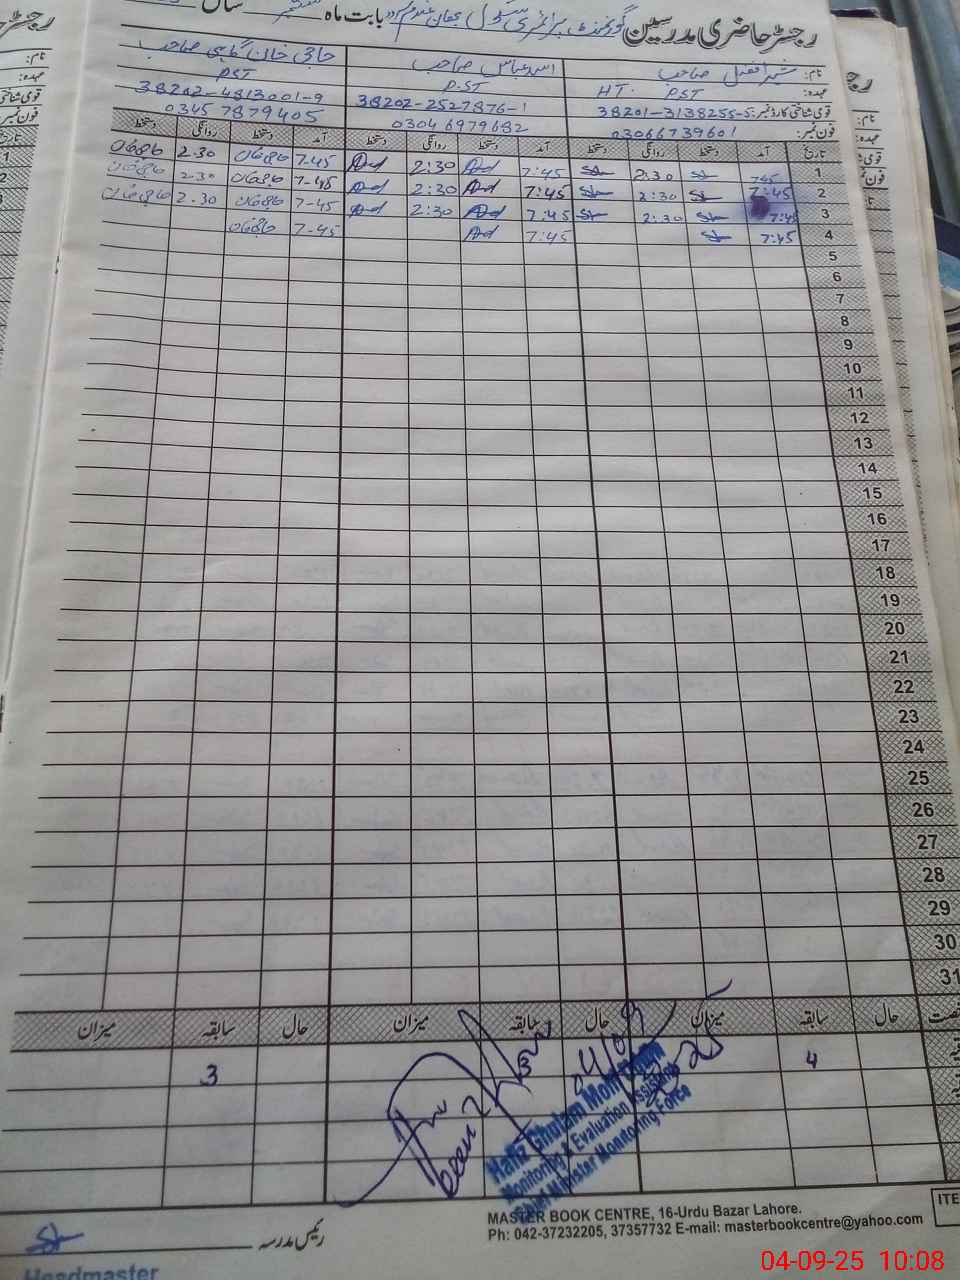 رجسٹر حاضری مدرسین گورنمنٹ پرائمری سکول بابت ماہ ستمبر سال
نام: شیر افضل صاحب اسد عباس صاحب حاجی خان صاحب
عہدہ: HT. PST P.ST PST
قومی شناختی کارڈ نمبر: 38201-3138255-5 38202-2527876-1 38202-4813001-9
فون نمبر: 03066739601 03046979682 0345 7879405
تاریخ آمد دستخط روانگی دستخط آمد دستخط روانگی دستخط آمد دستخط روانگی دستخط
1 7:45 2:30 7:45 2:30 7-45 2.30
2 7:45 2:30 7:45 2:30 7-45 2.30
3 7:45 2:30 7:45 2:30 7-45 2.30
4 7:45 7:45 7-45
5
6
7
8
9
10
11
12
13
14
15
16
17
18
19
20
21
22
23
24
25
26
27
28
29
30
31
حال سابقہ میزان حال سابقہ میزان حال سابقہ میزان
4 3 3
Hafiz Ghulam
Monitoring & Evaluation Assistant
Chief Minister Monitoring Force
رئیس مدرسہ
Headmaster
MASTER BOOK CENTRE, 16-Urdu Bazar Lahore.
Ph: 042-37232205, 37357732 E-mail: masterbookcentre@yahoo.com
ITE
04-09-25 10:08